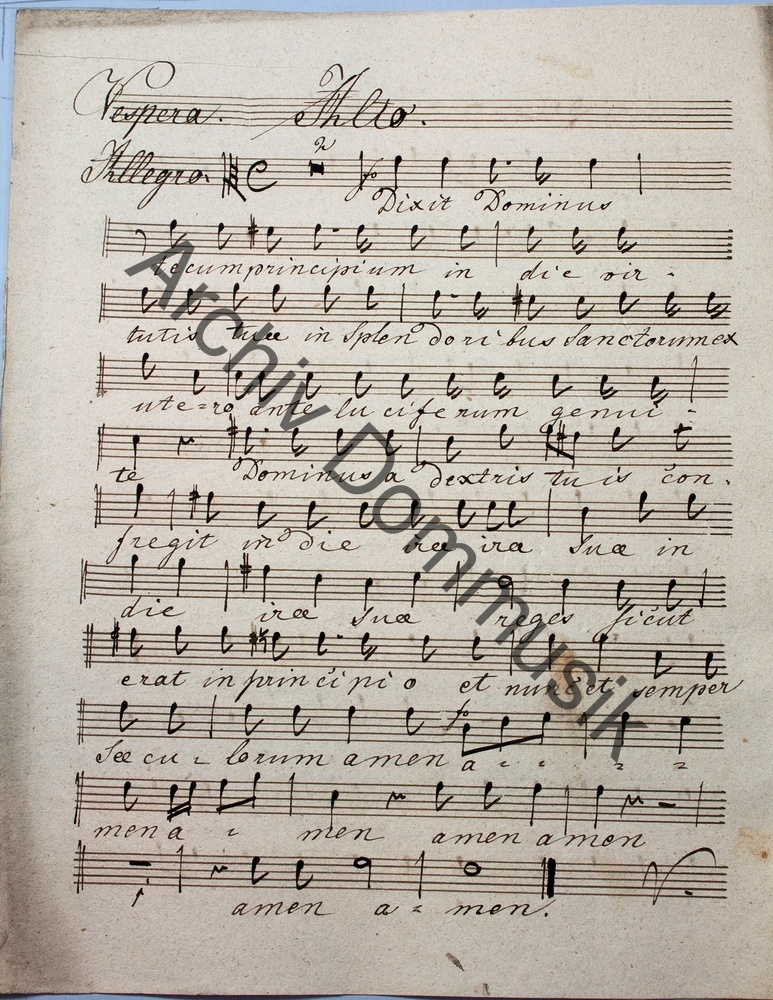 Vespera. Alto.
Allegro. 2 fo
Dixit Dominus
tecum principium in die vir -
tutis tuæ in splendoribus Sanctorum ex
ute = ro ante luciferum genui -
te Dominus a dextris tuis con -
fregit in die iræ ira suæ in
die iræ suæ reges sicut
erat in principio et nunc et semper
fo
Sæcu = lorum amen a - - - =
men a - men amen amen
1
amen a = men.
Archiv Dommusik